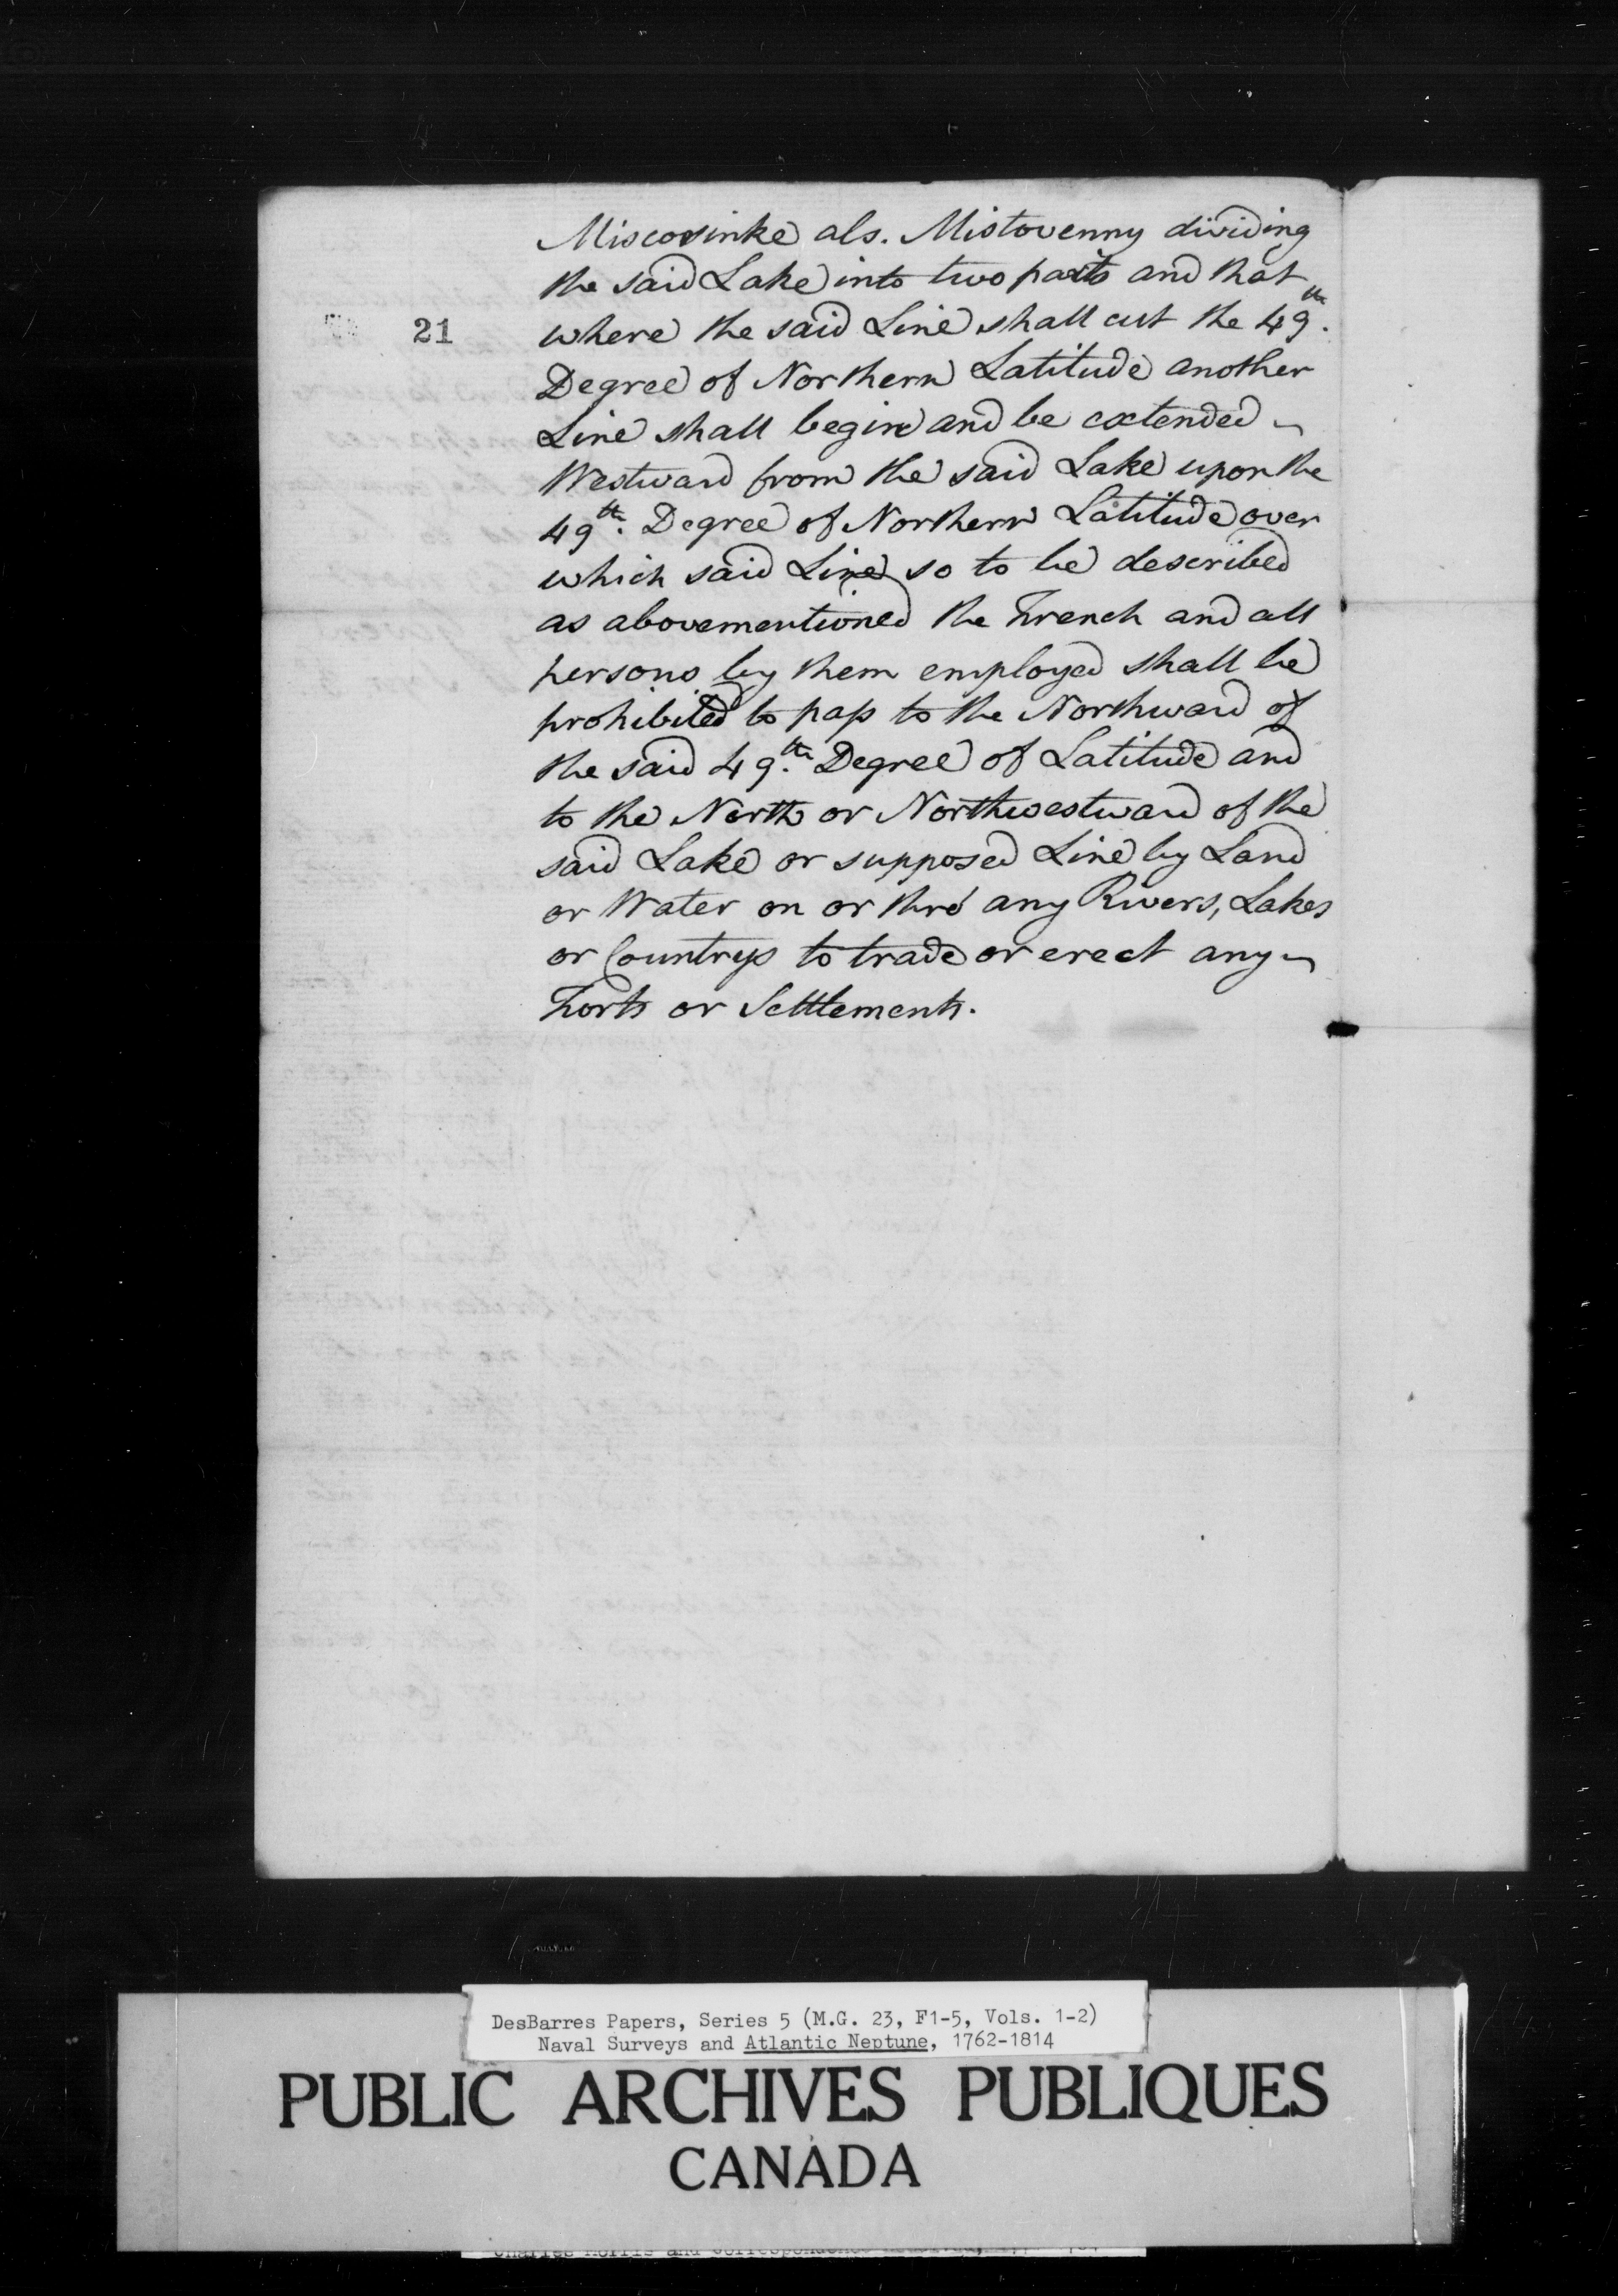 Miscosinke als. Mistovenny dividing
the said Lake into two parts and that
21
where the said Line shall cut the 49th.
Degree of Northern Latitude another
Line shall begin and be extended
Westward from the said Lake upon the
49th. Degree of Northern Latitude over
which said Line so to be described
as abovementioned the French and all
persons by them employed shall be
prohibited to pass to the Northward of
the said 49th. Degree of Latitude and
to the North or Northwestward of the
said Lake or supposed Line by Land
or Water on or thro' any Rivers, Lakes
or Countrys to trade or erect any
Forts or Settlements.
DesBarres Papers, Series 5 (M.G. 23, F1-5, Vols. 1-2)
Naval Surveys and Atlantic Neptune, 1762-1814
PUBLIC ARCHIVES PUBLIQUES
CANADA